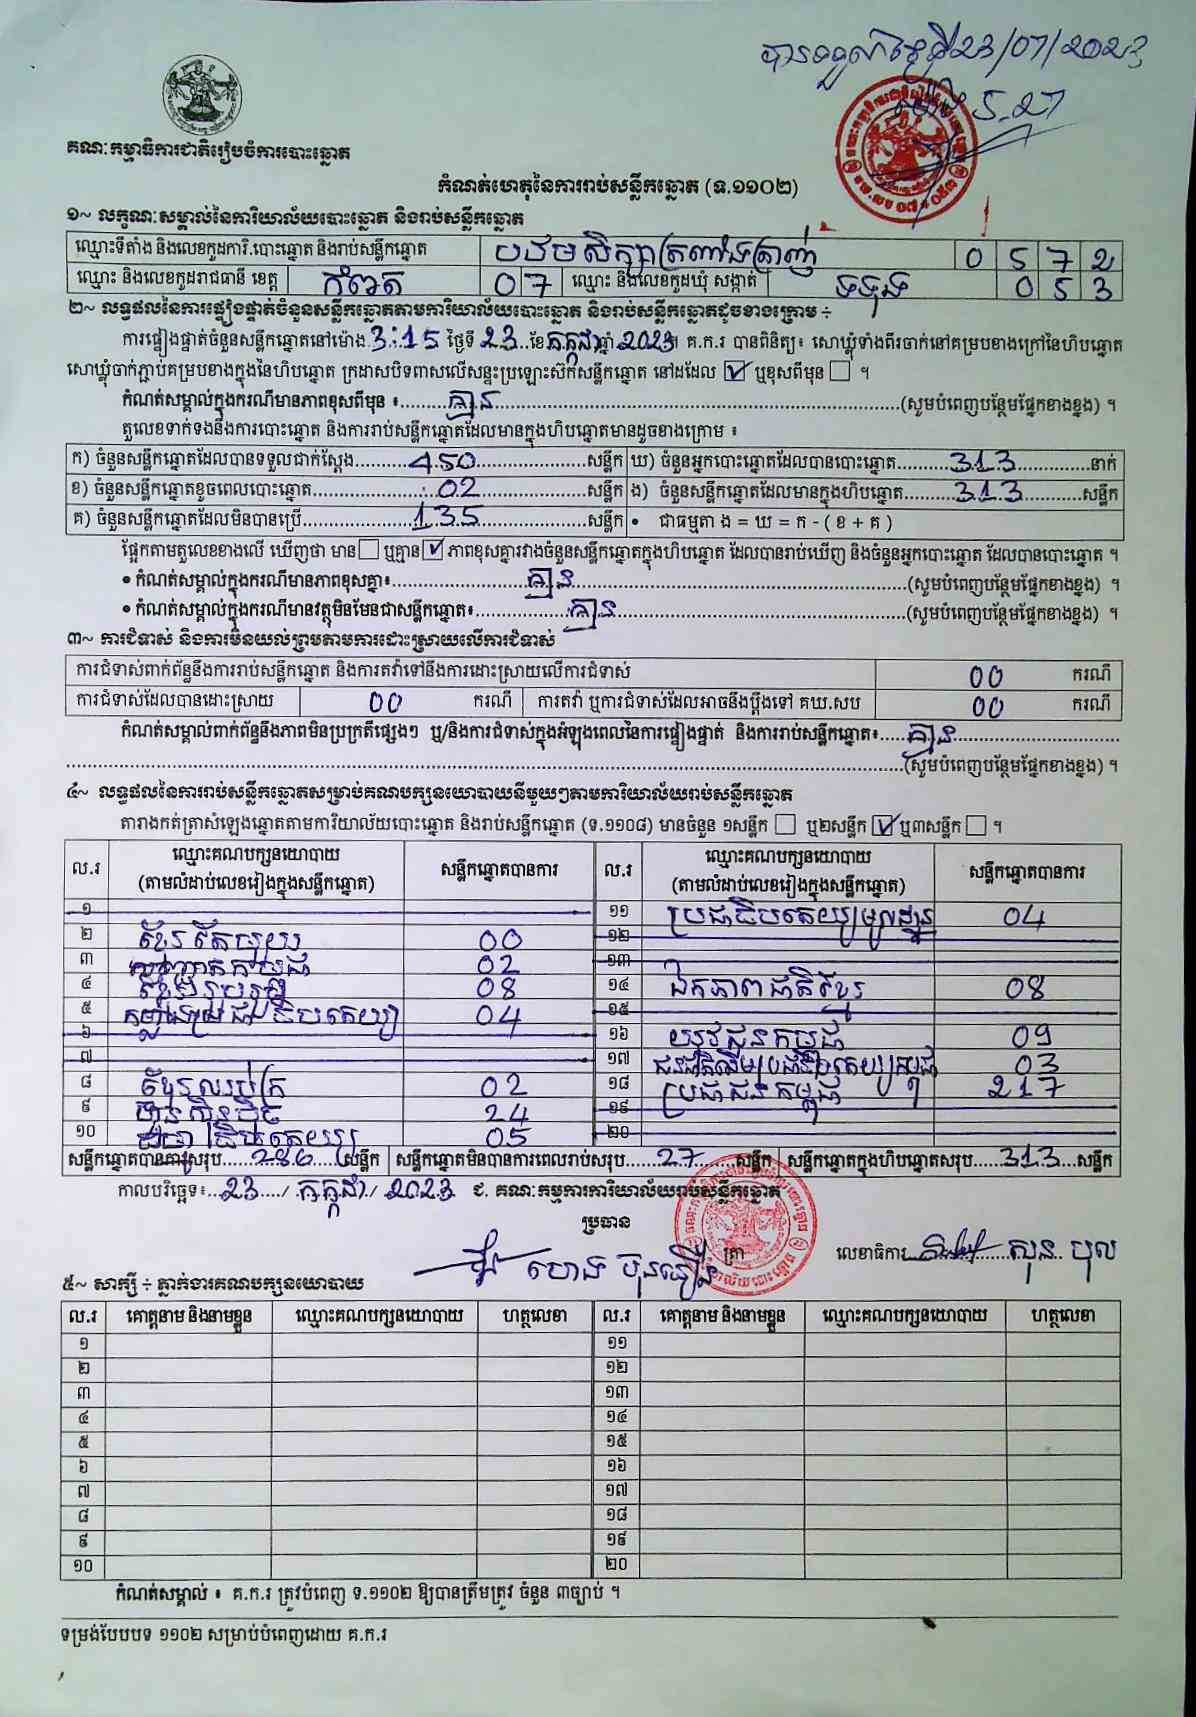 បានទទួលថ្ងៃទី23/07/2023
ម៉ោង 5.27
គណៈកម្មាធិការជាតិរៀបចំការបោះឆ្នោត
កំណត់ហេតុនៃការរាប់សន្លឹកឆ្នោត (ទ.១១០២)
១~ លក្ខណៈសម្គាល់នៃការិយាល័យបោះឆ្នោត និងរាប់សន្លឹកឆ្នោត
ឈ្មោះទីតាំង និងលេខកូដការិ.បោះឆ្នោត និងរាប់សន្លឹកឆ្នោត បឋមសិក្សាត្រពាំងត្រាញ់ 0 5 7 2
ឈ្មោះ និងលេខកូដរាជធានី ខេត្ត កំពត 0 7 ឈ្មោះ និងលេខកូដឃុំ សង្កាត់ ទទុង 0 5 3
២~ លទ្ធផលនៃការផ្ទៀងផ្ទាត់ចំនួនសន្លឹកឆ្នោតតាមការិយាល័យបោះឆ្នោត និងរាប់សន្លឹកឆ្នោតដូចខាងក្រោម ÷
ការផ្ទៀងផ្ទាត់ចំនួនសន្លឹកឆ្នោតនៅម៉ោង 3:15 ថ្ងៃទី 23 ខែ កក្កដា ឆ្នាំ 2023។ គ.ក.រ បានពិនិត្យ៖ សោឃ្លុំទាំងពីរចាក់នៅគម្របខាងក្រៅនៃហិបឆ្នោត
សោឃ្លុំចាក់ភ្ជាប់គម្របខាងក្នុងនៃហិបឆ្នោត ក្រដាសបិទពាសលើសន្ទះប្រឡោះស៊កសន្លឹកឆ្នោត នៅដដែល ☑ ឬខុសពីមុន ☐ ។
កំណត់សម្គាល់ក្នុងករណីមានភាពខុសពីមុន ៖ គ្មាន (សូមបំពេញបន្ថែមផ្នែកខាងខ្នង) ។
តួលេខទាក់ទងនឹងការបោះឆ្នោត និងការរាប់សន្លឹកឆ្នោតដែលមានក្នុងហិបឆ្នោតមានដូចខាងក្រោម ៖
ក) ចំនួនសន្លឹកឆ្នោតដែលបានទទួលជាក់ស្តែង 450 សន្លឹក ឃ) ចំនួនអ្នកបោះឆ្នោតដែលបានបោះឆ្នោត 313 នាក់
ខ) ចំនួនសន្លឹកឆ្នោតខូចពេលបោះឆ្នោត 02 សន្លឹក ង) ចំនួនសន្លឹកឆ្នោតដែលមានក្នុងហិបឆ្នោត 313 សន្លឹក
គ) ចំនួនសន្លឹកឆ្នោតដែលមិនបានប្រើ 135 សន្លឹក • ជាធម្មតា ង = ឃ = ក - ( ខ + គ )
ផ្អែកតាមតួលេខខាងលើ ឃើញថា មាន ☐ ឬគ្មាន ☑ ភាពខុសគ្នារវាងចំនួនសន្លឹកឆ្នោតក្នុងហិបឆ្នោត ដែលបានរាប់ឃើញ និងចំនួនអ្នកបោះឆ្នោត ដែលបានបោះឆ្នោត ។
• កំណត់សម្គាល់ក្នុងករណីមានភាពខុសគ្នា៖ គ្មាន (សូមបំពេញបន្ថែមផ្នែកខាងខ្នង) ។
• កំណត់សម្គាល់ក្នុងករណីមានវត្ថុមិនមែនជាសន្លឹកឆ្នោត៖ គ្មាន (សូមបំពេញបន្ថែមផ្នែកខាងខ្នង) ។
៣~ ការជំទាស់ និងការមិនយល់ព្រមតាមការដោះស្រាយលើការជំទាស់
ការជំទាស់ពាក់ព័ន្ធនឹងការរាប់សន្លឹកឆ្នោត និងការតវ៉ាទៅនឹងការដោះស្រាយលើការជំទាស់ 00 ករណី
ការជំទាស់ដែលបានដោះស្រាយ 00 ករណី ការតវ៉ា ឬការជំទាស់ដែលអាចនឹងប្តឹងទៅ គឃ.សប 00 ករណី
កំណត់សម្គាល់ពាក់ព័ន្ធនឹងភាពមិនប្រក្រតីផ្សេងៗ ឬ/និងការជំទាស់ក្នុងអំឡុងពេលនៃការផ្ទៀងផ្ទាត់ និងការរាប់សន្លឹកឆ្នោត៖ គ្មាន
(សូមបំពេញបន្ថែមផ្នែកខាងខ្នង) ។
៤~ លទ្ធផលនៃការរាប់សន្លឹកឆ្នោតសម្រាប់គណបក្សនយោបាយនីមួយៗតាមការិយាល័យរាប់សន្លឹកឆ្នោត
តារាងកត់ត្រាសំឡេងឆ្នោតតាមការិយាល័យបោះឆ្នោត និងរាប់សន្លឹកឆ្នោត (ទ.១១០៨) មានចំនួន ១សន្លឹក ☐ ឬ២សន្លឹក ☑ ឬ៣សន្លឹក ☐ ។
ល.រ ឈ្មោះគណបក្សនយោបាយ (តាមលំដាប់លេខរៀងក្នុងសន្លឹកឆ្នោត) សន្លឹកឆ្នោតបានការ ល.រ ឈ្មោះគណបក្សនយោបាយ (តាមលំដាប់លេខរៀងក្នុងសន្លឹកឆ្នោត) សន្លឹកឆ្នោតបានការ
១ ១១ ប្រជាធិបតេយ្យមូលដ្ឋាន 04
២ ខ្មែរតែមួយ 00 ១២
៣ 02 ១៣
៤ ខ្មែររួបរួម 08 ១៤ ឯកភាពជាតិខ្មែរ 08
៥ កម្លាំងប្រជាធិបតេយ្យ 04 ១៥
៦ ១៦ យុវជនកម្ពុជា 09
៧ ១៧ ជនជាតិដើមប្រជាធិបតេយ្យកម្ពុជា 03
៨ ខ្មែរឈប់ក្រ 02 ១៨ ប្រជាជនកម្ពុជា 217
៩ ហ៊្វុនស៊ិនប៉ិច 24 ១៩
១០ ប្រជាធិបតេយ្យ 05 ២០
សន្លឹកឆ្នោតបានការសរុប 286 សន្លឹក សន្លឹកឆ្នោតមិនបានការពេលរាប់សរុប 27 សន្លឹក សន្លឹកឆ្នោតក្នុងហិបឆ្នោតសរុប 313 សន្លឹក
កាលបរិច្ឆេទ៖ 23 / កក្កដា / 2023 ជ. គណៈកម្មការការិយាល័យរាប់សន្លឹកឆ្នោត
ប្រធាន
ហេង ប៊ុនធឿន ត្រា លេខាធិការ សុន បុល
៥~ សាក្សី ÷ ភ្នាក់ងារគណបក្សនយោបាយ
ល.រ គោត្តនាម និងនាមខ្លួន ឈ្មោះគណបក្សនយោបាយ ហត្ថលេខា ល.រ គោត្តនាម និងនាមខ្លួន ឈ្មោះគណបក្សនយោបាយ ហត្ថលេខា
១ ១១
២ ១២
៣ ១៣
៤ ១៤
៥ ១៥
៦ ១៦
៧ ១៧
៨ ១៨
៩ ១៩
១០ ២០
កំណត់សម្គាល់ ៖ គ.ក.រ ត្រូវបំពេញ ទ.១១០២ ឱ្យបានត្រឹមត្រូវ ចំនួន ៣ច្បាប់ ។
ទម្រង់បែបបទ ១១០២ សម្រាប់បំពេញដោយ គ.ក.រ